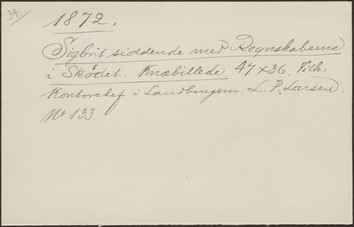 1872.
Sigbrit siddende med Regnskaberne
i Skødet. Knæbillede 47 x 36. Tilh.
Kontorchef i Landbugern L. P. Larsen.
Nº 133